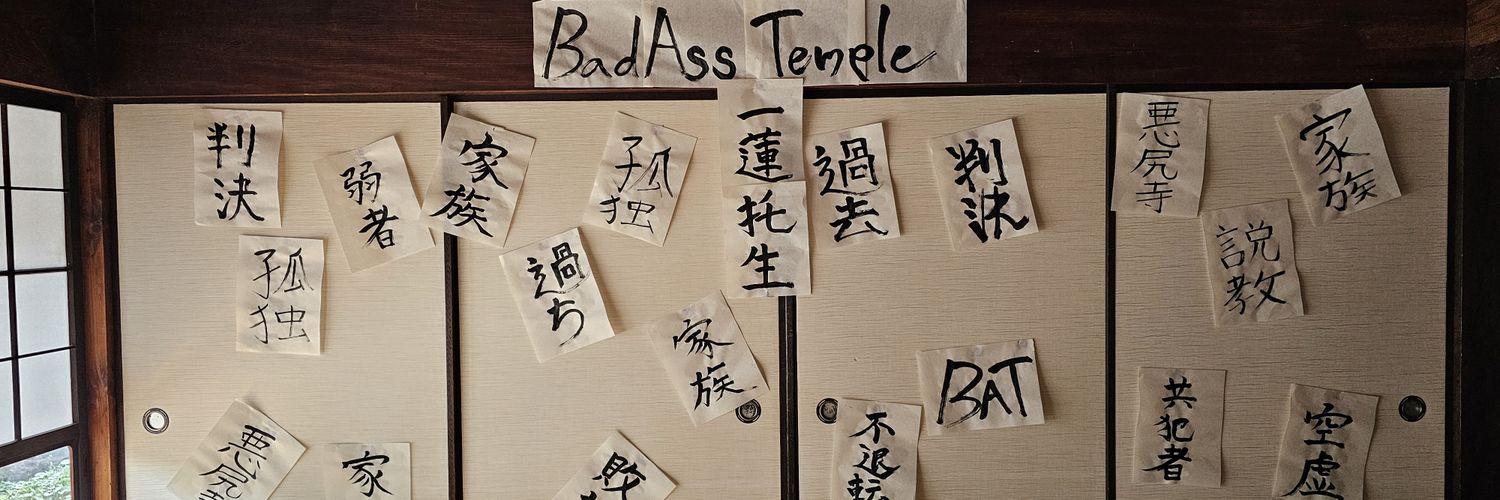 BadAss Temple
判決
弱者
家族
孤独
一蓮托生
過去
判決
悪尻寺
家族
孤独
過ち
家族
説教
BAT
不退転
共犯者
空虚
悪尻寺
家